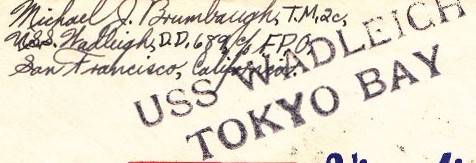 Michael J. Brumbaugh, T.M.2c,
U.S.S. Wadleigh, D.D. 689, c/o F.P.O.
San Francisco, California.
USS WADLEIGH
TOKYO BAY